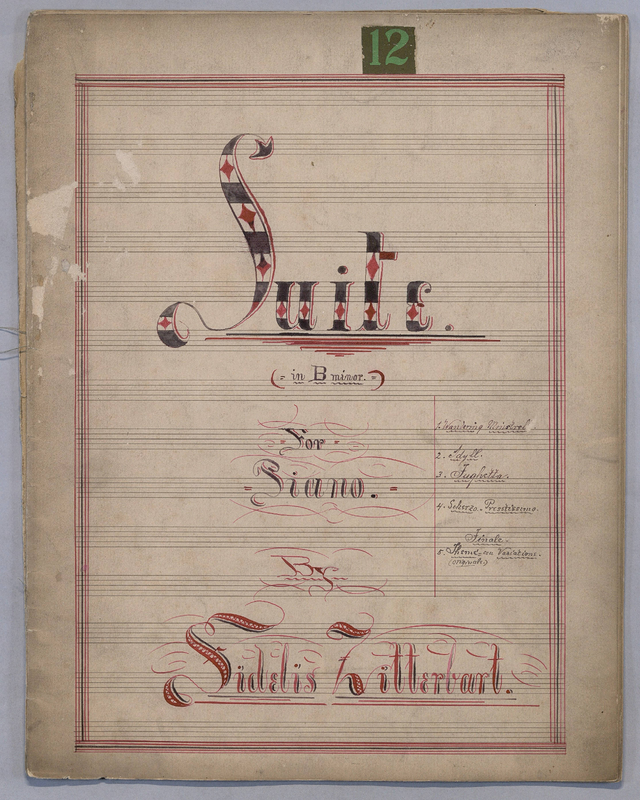 12
Suite.
(= in B minor. =)
For
Piano.
By
Fidelis Zitterbart.
1. Wandering Minstrel
2. Idyll.
3. Fughetta.
4. Scherzo. Prestissimo.
Finale.
5. Theme con Variations.
(original)